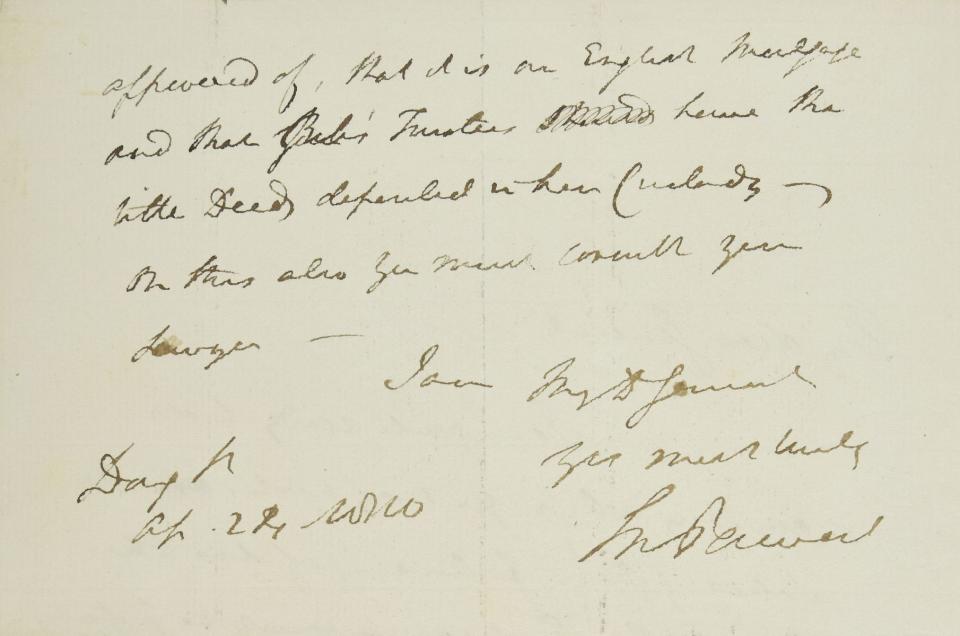 approved of, that it is an English Mortgage
and that Trustees have the
title Deeds deposited in their Custody —
On this also you must consult your
Lawyer —
I am My D General
yrs most truly
Ap. 24 1810